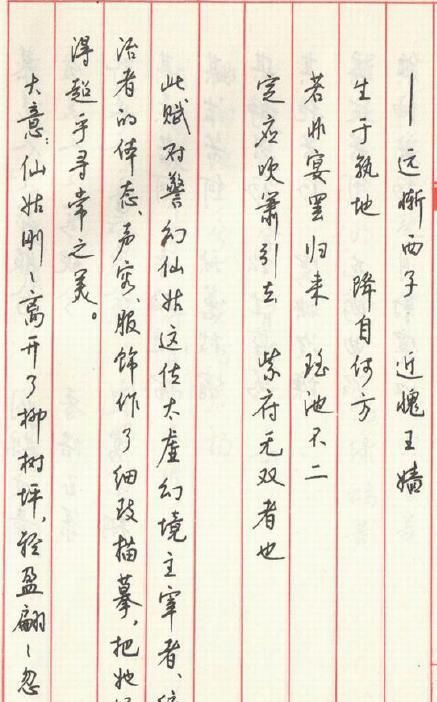 ——远惭西子 近愧王嫱
生于孰地 降自何方
若非宴罢归来 瑶池不二
定应吹箫引去 紫府无双者也
此赋对警幻仙姑这位太虚幻境主宰者、
治者的体态、声容、服饰作了细致描摹,把她
得超乎寻常之美。
大意:仙姑刚刚离开了柳树坪,轻盈翩翩忽